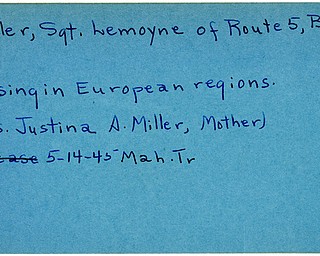 ler, Sgt. Lemoyne of Route 5, B
sing in European regions.
s. Justina A. Miller, Mother)
ease 5-14-45 Mah. Tr